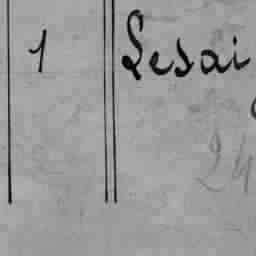 1 Lesai
24